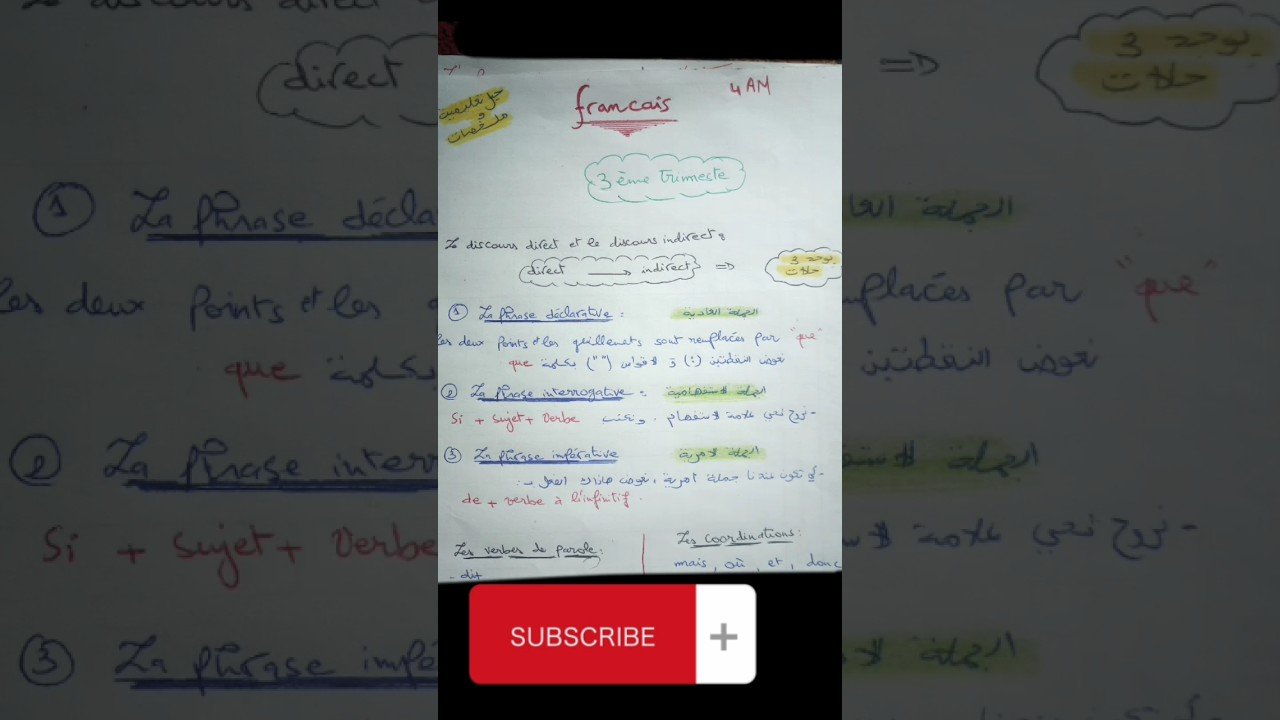 4 AM
francais
حيل تعليمية
و
ملخصات
3 ème trimecte
Le discours direct et le discours indirect :
direct → indirect ⇒ يوجد 3
حلات
① La phrase déclarative : الجملة العادية
les deux points et les guillemets sont remplacés par "que"
نعوض النقطتين (:) و الأقواس (" ") بكلمة que
② La phrase interrogative : الجملة الاستفهامية
- نروح نحي علامة الاستفهام . و نكتب Si + Sujet + Verbe
③ La phrase impérative الجملة الأمرية
تكون عندنا جملة أمرية ، نعوض هذاك الفعل
de + verbe à l'infinitif .
Les verbes de parole :
- dit
Les coordinations :
mais, où, et, donc
SUBSCRIBE +